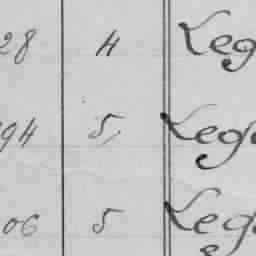 28 4 Leg
94 5 Lega
06 5 Lega